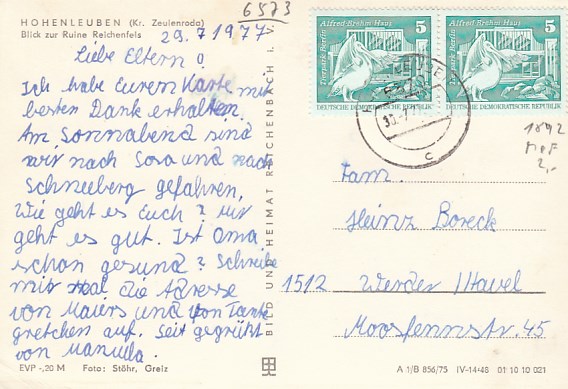 6573
HOHENLEUBEN (Kr. Zeulenroda)
Blick zur Ruine Reichenfels
29.7.1977
Liebe Eltern!
Ich habe Euren Karte mit
besten Dank erhalten.
Am Sonnabend sind
wir nach Sosa und nach
Schneeberg gefahren,
Wie geht es Euch? Mir
geht es gut. Ist Oma
schon gesund? Schreibe
mir mal die Adresse
von Maiers und von Tante
gretchen auf. Seit gegrüßt
von Manuela.
EVP -,20 M Foto: Stöhr, Greiz
BILD UND HEIMAT REICHENBACH I. V.
Tierpark Berlin
Alfred-Brehm-Haus
5
DEUTSCHE DEMOKRATISCHE REPUBLIK
Tierpark Berlin
Alfred-Brehm-Haus
5
DEUTSCHE DEMOKRATISCHE REPUBLIK
c
1842
2,-
Fam.
Heinz Boreck
1512 Werder/Havel
Moosfennstr. 45
A 1/B 856/75 IV-14-48 01 10 10 021